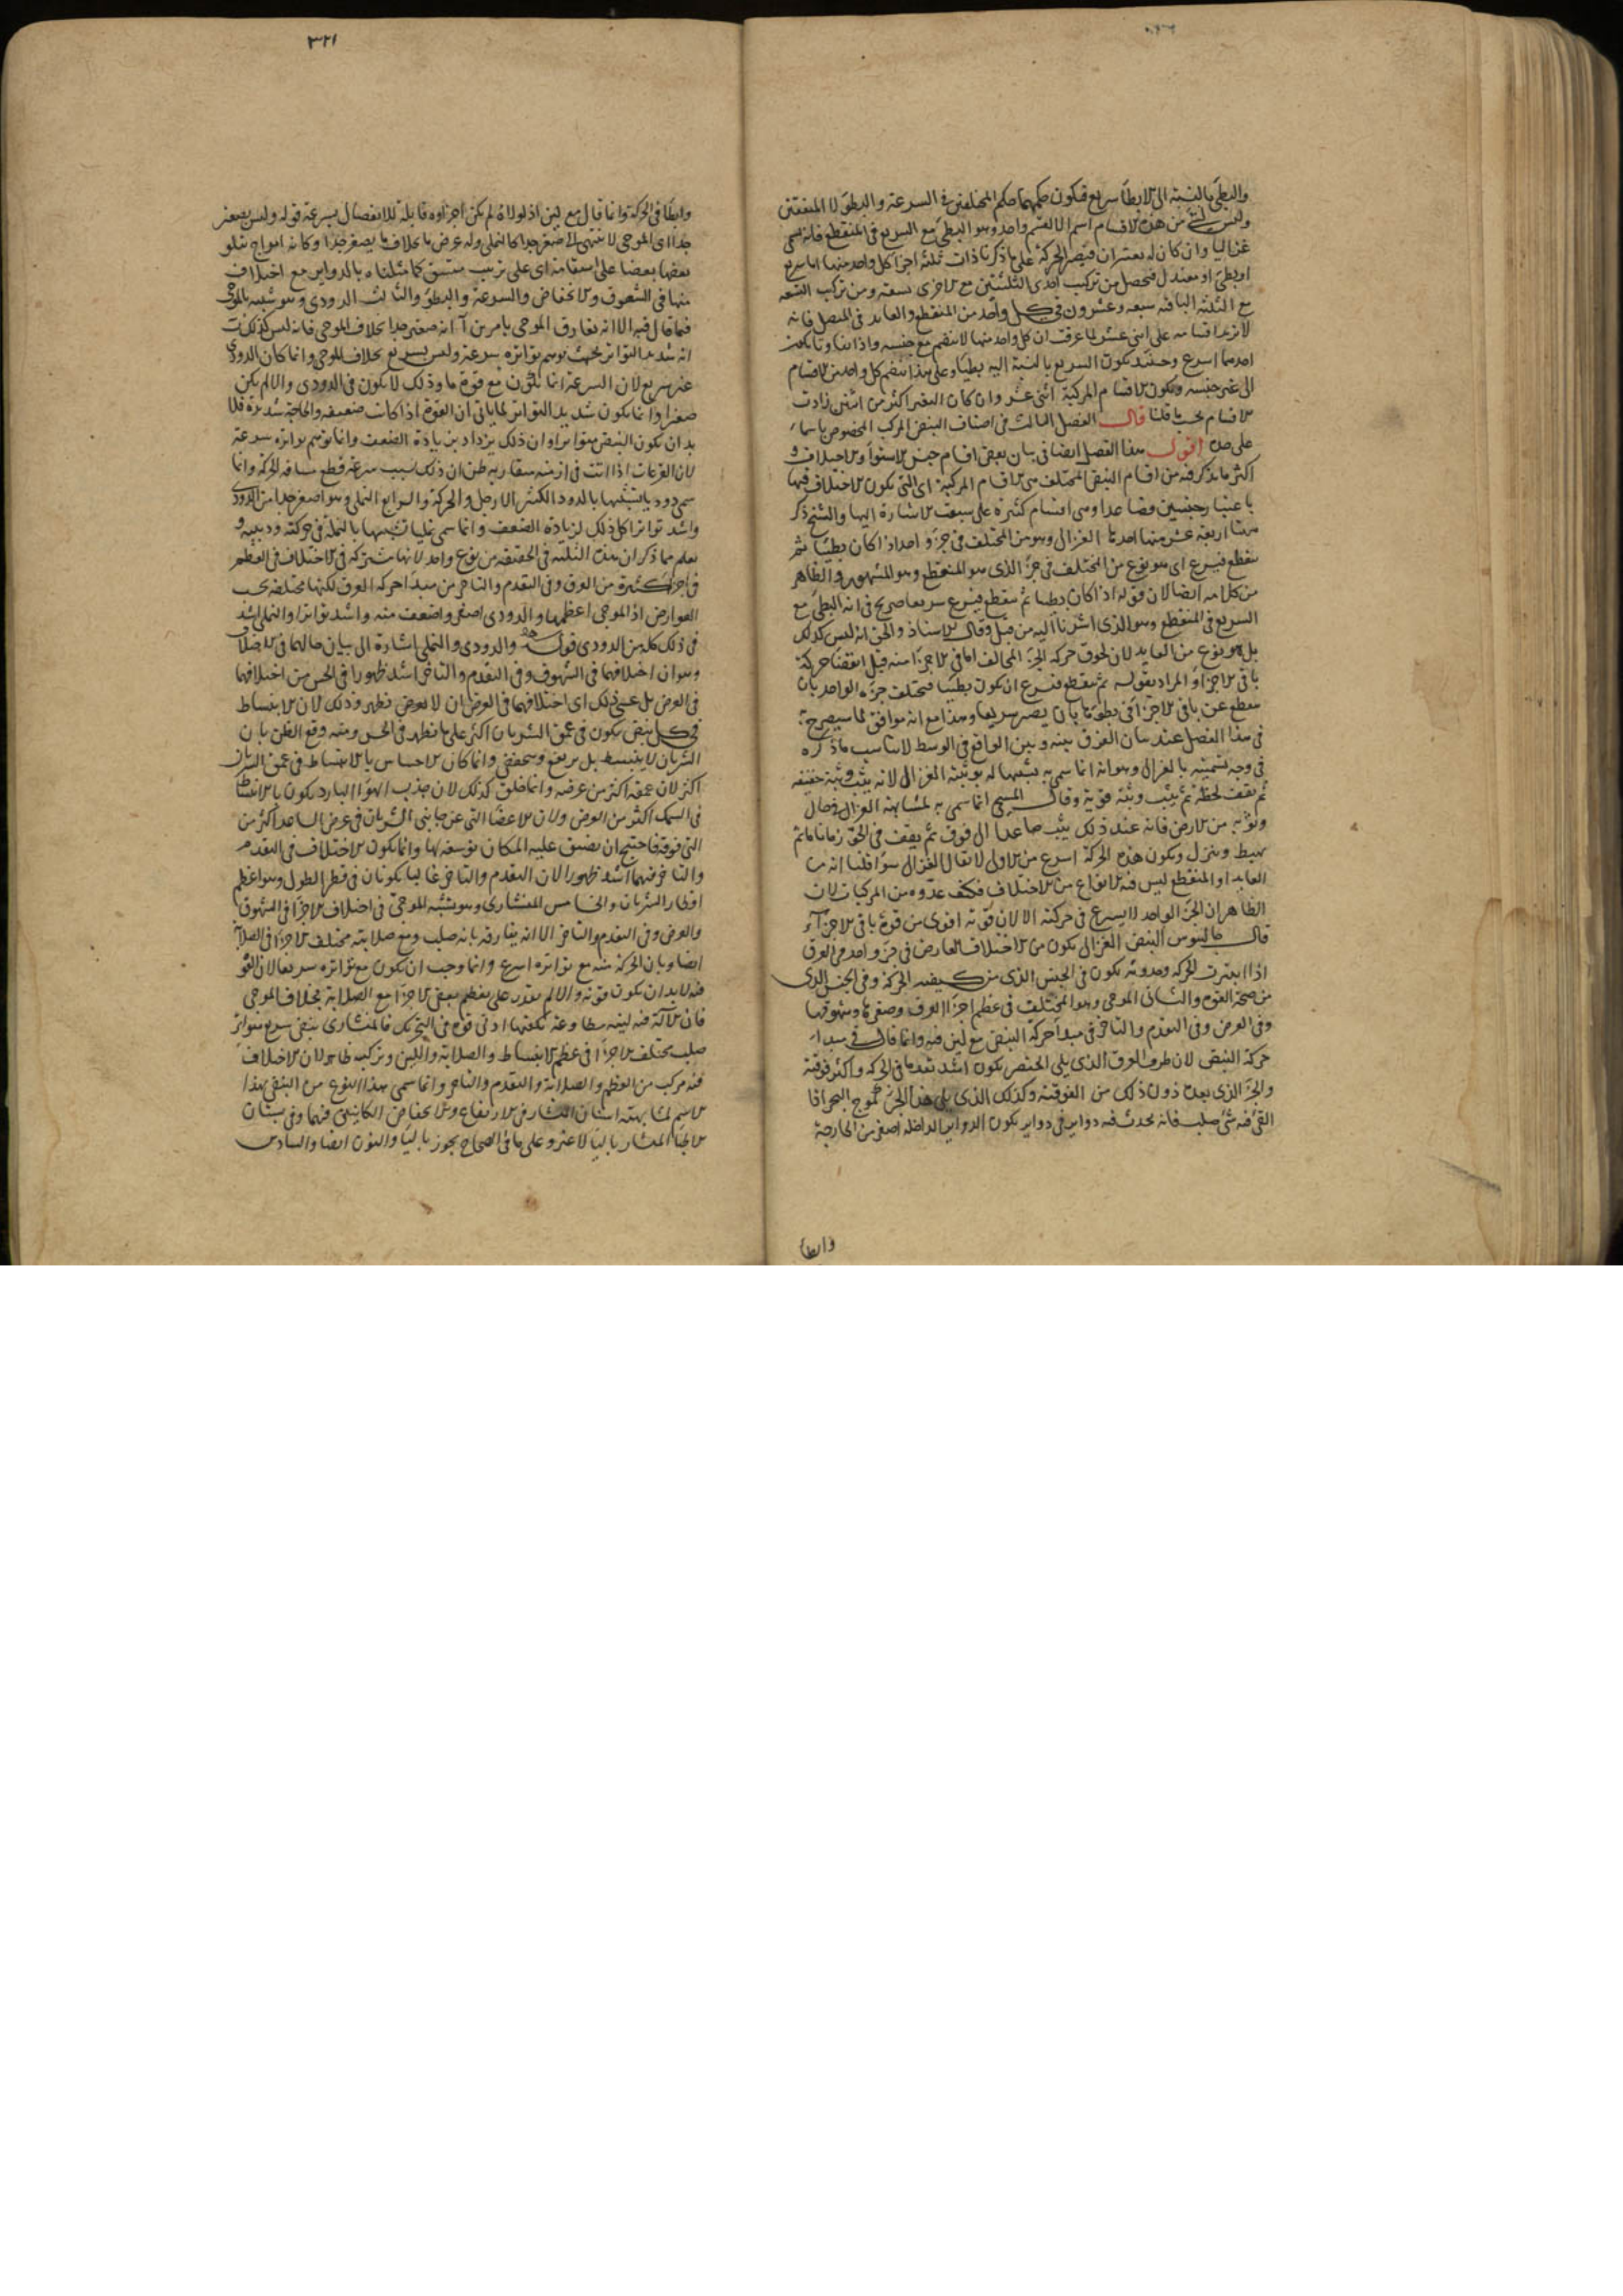 والبطئ بالنسبة الى الابطأ سريع فيكون حكمهما حكم المختلفين في السرعة والبطؤ لا المتفقين
وليس لشئ من هذه الاقسام اسم الا لقسم واحد وهو البطئ مع السريع في المنقطع فانه يسمى
غزاليا وان كان له يعتبران فيصير الحركة على ما ذكرنا ذات ثلثة اجزا كل واحد منها اما سريع
او بطئ او معتدل فيحصل من تركيب احدى الثلثتين مع الاخرى تسعة ومن تركيب التسعة
مع الثلثة الباقية سبعة وعشرون في كل واحد من المنقطع والعايد في المتصل فانه
لا يزيد اقسامه على اثنى عشر لما عرفت ان كل واحد منها لا ينضم مع جنسه واذا
احدهما اسرع وحينئذ يكون السريع بالنسبة اليه بطيئا وعلى هذا ينضم كل واحد من الاقسام
الى غير جنسه ويكون الاقسام المركبة اثنى عشر وان كان التغير اكثر من اثنين زادت
الاقسام بحسب ما قلنا قال الفصل الثالث في اصناف النبض المركب المخصوص باسماء
على حدة اقول هذا الفصل ايضا في بيان بعض اقسام جنس الاستواء والاختلاف و
اكثر ما يذكر فيه من اقسام النبض المختلف هى الاقسام المركبة اى التى يكون الاختلاف فيها
باعتبار جنسين فصاعدا وهى اقسام كثيرة على سبقت الاشارة اليها والشيخ ذكر
منها اربعة عشر منها احدها الغزالى وهو من المختلف في جزء واحد اذا كان بطيئا ثم
ينقطع فيسرع اى هو نوع من المختلف في جزء الذى هو المنقطع وهو المشهور والظاهر
من كلامه ايضا لان قوله اذا كان بطيئا ثم ينقطع فيسرع سريعا صريح في انه البطئ مع
السريع في المنقطع وهو الذى اشرنا اليه من قبل وقال الاستاذ والحق انه ليس كذلك
بل هو نوع من العايد لان لحوق حركة الجزء المخالف اما في الاجزاء منه قبل انقضا حركة
باقى الاجزاء والمراد بقوله ثم ينقطع فيسرع ان يكون بطيئا فيختلف جزءه الواحد بان
ينقطع عن باقى الاجزا في بطؤها بان يصير سريعا وهذا مع انه موافق لما سيصرح به
في هذا الفصل عند بيان الفرق بينه وبين الواقع في الوسط لا يناسب ما ذكره
في وجه تسميته بالغزالى وهو انه انما سمى به تشبيها له بوثبة الغزال لانه يثب وثبة خفيفة
ثم يقف لحظة ثم يثب وثبة قوية وقال المسيحى انما سمى به لمشابهته الغزال في حال
وثوبه من الارض فانه عند ذلك يثب صاعدا الى فوق ثم يقف في الجو زمانا ما ثم
يهبط وينزل ويكون هذه الحركة اسرع من الاولى لا يقال الغزالى سوا قلنا انه من
العايد او المنقطع ليس فيه الانواع من الاختلاف فكيف عدوه من المركبات لان
الظاهر ان الجزء الواحد لا يسرع في حركته الا لان قوته اقوى من قوة باقى الاجزاء
قال جالينوس النبض الغزالى يكون من الاختلاف العارض في جزء واحد من العرق
اذا اعتبرت الحركة وحدوثه يكون في الجنس الذى من كيفية الحركة وفي الجنس الذى
من صحة القوة والثانى الموجى وهو المختلف في عظم اجزا العرق وصغرها وشهوقها
وفي العرض وفي التقدم والتاخر في مبدا حركة النبض مع لين فيه وانما قال في مبدا
حركة النبض لان طرف العرق الذى يلى الخنصر يكون اشد تقدما في الحركة واكثر فوقية
والجزء الذى بعده دون ذلك من الفوقية وكذلك الذى يلى هذا الجزء كموج البحر اذا
القى فيه شئ صلب فانه يحدث فيه دواير في دواير يكون الدواير الداخلة اصغر من الخارجة
وابطا
٣٢١
وابطا في الحركة وانما قال مع لين اذ لولاه لم يكن اجزاوه قابلة للانفصال بسرعة قوله وليس بصغير
جدا اى الموجى لا ينتهى الى صغير جدا كالنملى وله عرض ما بخلاف ما يصغر جدا وكانه امواج يتلو
بعضها بعضا على استقامة اى على ترتيب متسق كما مثلناه بالدواير مع اختلاف
منها في الشهوق والانخفاض والسرعة والبطؤ والثالث الدودى وهو شبيه بالموجى
فيما قال فيه الا انه يفارق الموجى بامرين ا انه صغير جدا بخلاف الموجى فانه ليس كذلك ب
انه شديد التواتر بحيث يوهم تواتره سرعة وليس بسريع بخلاف الموجى وانما كان الدودى
غير سريع لان السرعة انما تكون مع قوة ما وذلك لا يكون في الدودى والا لم يكن
صغيرا وانما يكون شديد التواتر لما ياتى ان القوة اذا كانت ضعيفة والحاجة شديدة فلا
بد ان يكون النبض متواترا وان ذلك يزداد بزيادة الضعف وانما يوهم تواتره سرعة
لان القرعات اذا اتت في ازمنة متقاربة ظن ان ذلك بسبب سرعة قطع مسافة الحركة وانما
سمى دوديا تشبيها بالدود الكثير الارجل والحركة والرابع النملى وهو اصغر جدا من الدودى
واشد تواترا كل ذلك لزيادة الضعف وانما سمى نمليا تشبيها بالنملة في حركته ودبيبه و
يعلم مما ذكر ان هذه الثلثة في الحقيقة من نوع واحد لانها مشتركة في الاختلاف في العظم
في اجزا كثيرة من العرق وفي التقدم والتاخر من مبدا حركة العرق لكنها مختلفة بحسب
العوارض اذ الموجى اعظمها والدودى اصغر واضعف منه واشد تواترا والنملى اشد
في ذلك كله من الدودى قوله والدودى والنملى اشارة الى بيان حالهما في الاختلاف
وهو ان اختلافهما في الشهوق وفي التقدم والتاخر اشد ظهورا في الحس من اختلافهما
في العرض بل عسى ذلك اى اختلافهما في العرض ان لا يعرض فظهر وذلك لان الانبساط
في كل نبض يكون في عمق الشريان اكثر على ما يظهر في الحس ومنه وقع الظن بان
الشريان لا ينبسط بل يرتفع وينخفض وانما كان الاحساس بالانبساط في عمق الشريان
اكثر لان عمقه اكثر من عرضه وانما خلق كذلك لان جذب الهوا البارد يكون بالانبساط
في السمك اكثر من العرض ولان الاعضا التى عن جانبى الشريان في عرض الساعد اكثر من
التى فوقه فاحتيج ان يضيق عليه المكان توسعة لها وانما يكون الاختلاف في التقدم
والتاخر فيهما اشد ظهورا لان التقدم والتاخر غالبا يكونان في قطر الطول وهو اعظم
اقطار الشريان والخامس المنشارى وهو يشبه الموجى في اختلاف الاجزا في الشهوق
والعرض وفي التقدم والتاخر الا انه يفارقه بانه صلب ومع صلابته مختلف الاجزا في الصلابة
ايضا وبان الحركة منه مع تواتره اسرع وانما وجب ان يكون مع تواتره سريعا لان القوة
فيه لا بد ان يكون قوية والا لم يقدر على تعظيم بعض الاجزا مع الصلابة بخلاف الموجى
فان الآلة فيه لينة مطاوعة تكفيها ادنى قوة في التحريك فالمنشارى نبض سريع متواتر
صلب مختلف الاجزا في عظم الانبساط والصلابة واللين وتركيبه ظاهر لان الاختلاف
فيه مركب من العظم والصلابة والتقدم والتاخر وانما سمى هذا النوع من النبض بهذا
الاسم لمشابهته اسنان المنشار في الارتفاع والانخفاض الكاينين فيهما وفي
المنشار باليا لا غير وعلى ما في الصحاح يجوز باليا والنون ايضا والسادس